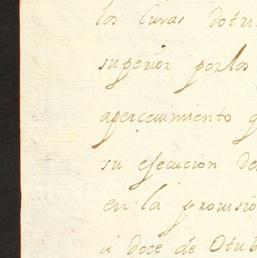 los Curas dotri
superior por los
apercevimiento q
su ejecucion de
en la provisio
a doce de Otub